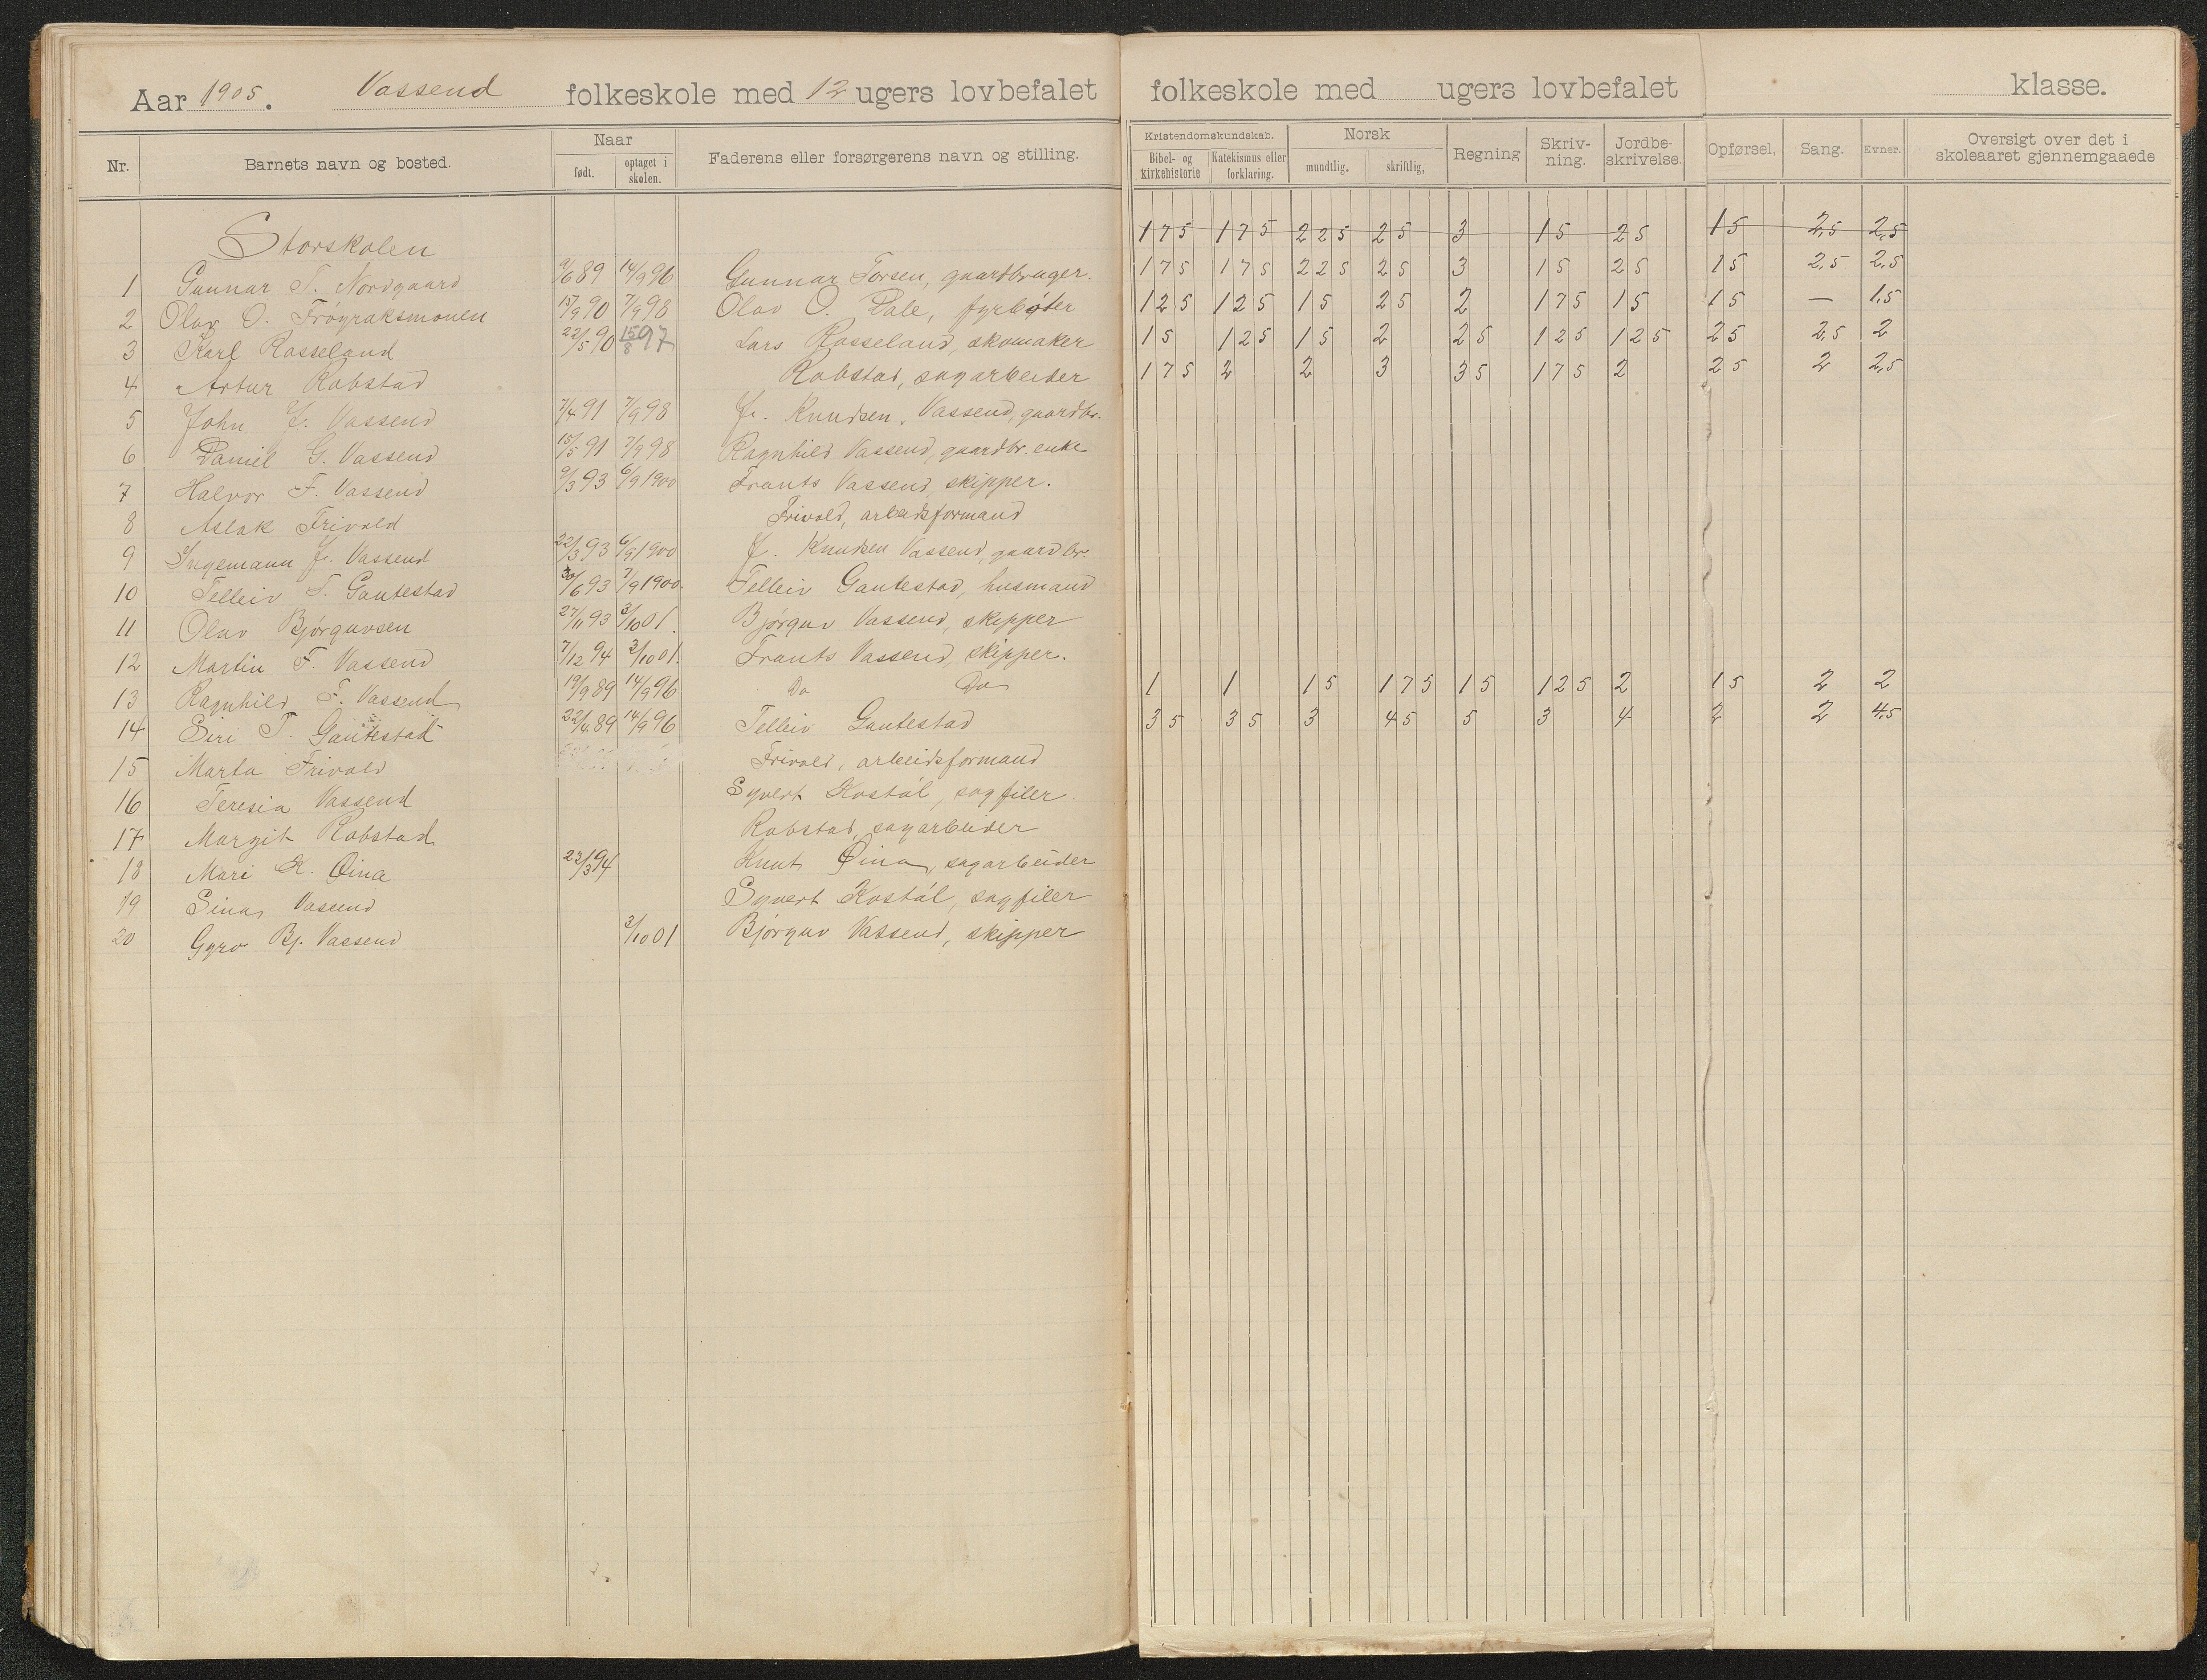 Aar 1905. Vassend folkeskole med 12 ugers lovbefalet folkeskole med ugers lovbefalet klasse.
Nr. Barnets navn og bosted. Naar født. optaget i skolen. Faderens eller forsørgerens navn og stilling. Kristendomskundskab. Bibel- og kirkehistorie Katekismus eller forklaring. Norsk mundtlig. skriftlig, Regning Skriv-ning. Jordbe-skrivelse. Opførsel. Sang. Evner. Oversigt over det i skoleaaret gjennemgaaede
Storskolen 175 175 225 25 3 15 25 15 2,5 2,5
1 Gunnar T. Nordgaard 9/6 89 14/9 96 Gunnar Torsen, gaardbruger. 175 175 225 25 3 15 25 15 2,5 2,5
2 Olav O. Frøyraksmonen 15/9 90 7/9 98 Olav O. Dale, fyrbøter 125 125 15 25 2 175 15 15 — 1,5
3 Karl Rosseland 22/5 90 15/8 97 Lars Rosseland, skomaker 15 125 15 2 25 125 125 25 2,5 2
4 Artur Robstad Robstad, sagarbeider 175 2 2 3 35 175 2 25 2 2,5
5 John J. Vassend 7/4 91 7/9 98 J. Knudsen Vassend, gaardbr.
6 Daniel G. Vassend 15/5 91 7/9 98 Ragnhild Vassend, gaardbr. enke
7 Halvor F. Vassend 9/3 93 6/9 1900 Frants Vassend, skipper.
8 Aslak Trivold Trivold, arbeidsformand
9 Ingemann J. Vassend 22/3 93 6/9 1900 J. Knudsen Vassend, gaardbr.
10 Telleiv T. Gautestad 30/6 93 7/9 1900. Telleiv Gautestad, husmand
11 Olav Bjørguvsen 27/11 93 3/10 01. Bjørguv Vassend, skipper
12 Martin F. Vassend 7/12 94 3/10 01. Frants Vassend, skipper.
13 Ragnhild F. Vassend 19/9 89 14/9 96 Do Do 1 1 15 175 15 125 2 15 2 2
14 Siri T. Gautestad 22/4 89 14/9 96 Telleiv Gautestad 35 35 3 45 5 3 4 2 2 4,5
15 Marta Trivold Trivold, arbeidsformand
16 Teresia Vassend Syvert Kostøl, sagfiler.
17 Margit Robstad Robstad, sagarbeider
18 Mari K. Øina 22/3 94 Knut Øina, sagarbeider
19 Sina Vassend Syvert Kostøl, sagfiler
20 Gyro Bj. Vassend 3/10 01 Bjørguv Vassend, skipper